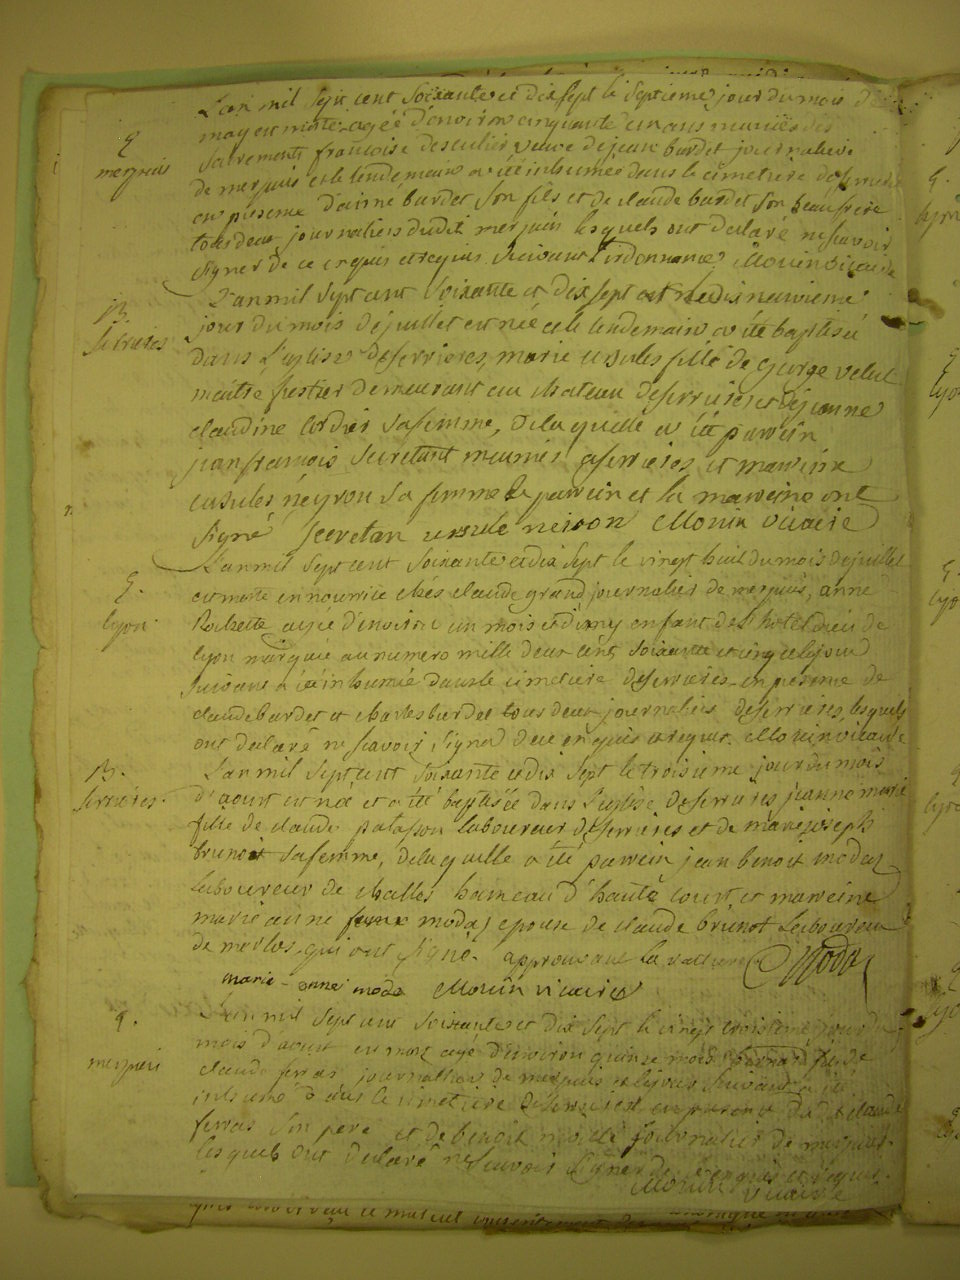 L'an mil sept cent soixante et dix sept le septieme jour du mois de
may est morte agée d'environ cinquante cinq ans munie des
sacrements françoise descultis veuve de jean burdet journalier
de merpuis et le lendemain a été inhumée dans le cimetiere deserrieres
en presence d'aimé burdet son fils et de claude burdet son beaufrere
tous deux journaliers dudit merpuis lesquels ont declaré ne scavoir
signer de ce enquis et requis suivant l'ordonnance. Mouin vicaire
B.
Serrieres
L'an mil sept cent soixante et dix sept est née le dix neuvieme
jour du mois de juillet et née et le lendemain a été baptisée
dans l'eglise deserrieres, marie ursules fille de george velut
maitre fustier demeurant au chateau deserrieres et de jeanne
claudine cordier sa femme, de laquelle a été parrein
jean francois secretant meunier a serrieres et marreine
ursules neyron sa femme le parrein et la marreine ont
signé secretan ursule neiron Mouin vicaire
S.
lyon
L'an mil sept cent soixante et dix sept le vingt huit du mois de juillet
est morte en nourrice chés claude grand journalier de merpuis, anne
Rochette agée d'environ un mois et demy enfant de l'hotel dieu de
lyon marquée au numero mille deux cent soixante et cinq et le jour
suivant a été inhumée dans le cimetiere deserrieres en presence de
claude burdet et charles burdet tous deux journaliers deserrieres, lesquels
ont declaré ne scavoir signer de ce enquis et requis. Mouin vicaire
B.
serrieres
L'an mil sept cent soixante et dix sept le troisieme jour du mois
d'aoust est née et a été baptisée dans l'eglise deserrieres jeanne marie
fille de claude patasson laboureur deserrieres et de marie joseph
brunot sa femme, de laquelle a été parrein jean benoit modas
laboureur de challes hameau d'haute court et marreine
marie anne modas epouse de claude brunot laboureur
de merlos, qui ont signé. approuvant la rature Moda
marie - anne moda Mouin vicaire
S.
merpuis
L'an mil sept cent soixante et dix sept le vingt troisieme jour du
mois d'aoust est mort agé d'environ quinze mois bernard fils de
claude ferras journallier de merpuis et le jour suivant a été
inhumé dans le cimetiere deserrieres en presence dudit claude
ferras son pere et de benoit journalier de merpuis
lesquels ont declaré ne scavoir signer de ce enquis et requis.
Mouin vicaire